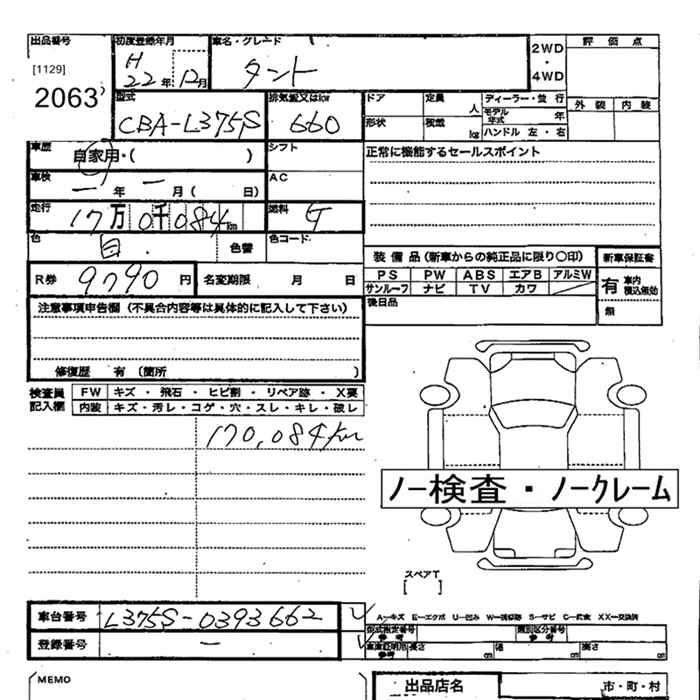 出品番号 初度登録年月 車名・グレード 2WD・4WD 評価点
[1129] H 22年 12月 タント
2063
型式 排気量又はlor ドア 定員 人 ディーラー・並行 外装 内装
CBA-L375S 660 形状 積載 kg モデル年式 年
ハンドル 左・右
車歴 自家用・( ) シフト 正常に機能するセールスポイント
車検 一 年 一 月( 日) AC
走行 17万0千084km 燃料 G
色 白 色替 色コード
装備品(新車からの純正品に限り〇印) 新車保証書
R券 9790円 名変期限 月 日 PS PW ABS エアB アルミW 有 車内積込無効
サンルーフ ナビ TV カワ 無
後日品
注意事項申告欄(不具合内容等は具体的に記入して下さい)
修復歴 有(箇所 )
検査員記入欄 FW キズ・飛石・ヒビ割・リペア跡・X要
内装 キズ・汚レ・コゲ・穴・スレ・キレ・破レ
170,084km
ノー検査・ノークレーム
スペアT
[ ]
車台番号 L375S-0393662 レ A…キズ E…エクボ U…凹み W…補修跡 S…サビ C…腐食 XX…交換済
登録番号 一 レ 型式指定番号 参考 類別区分番号 参考
車庫証明用参考 長さ cm 幅 cm 高さ cm
MEMO 出品店名 市・町・村